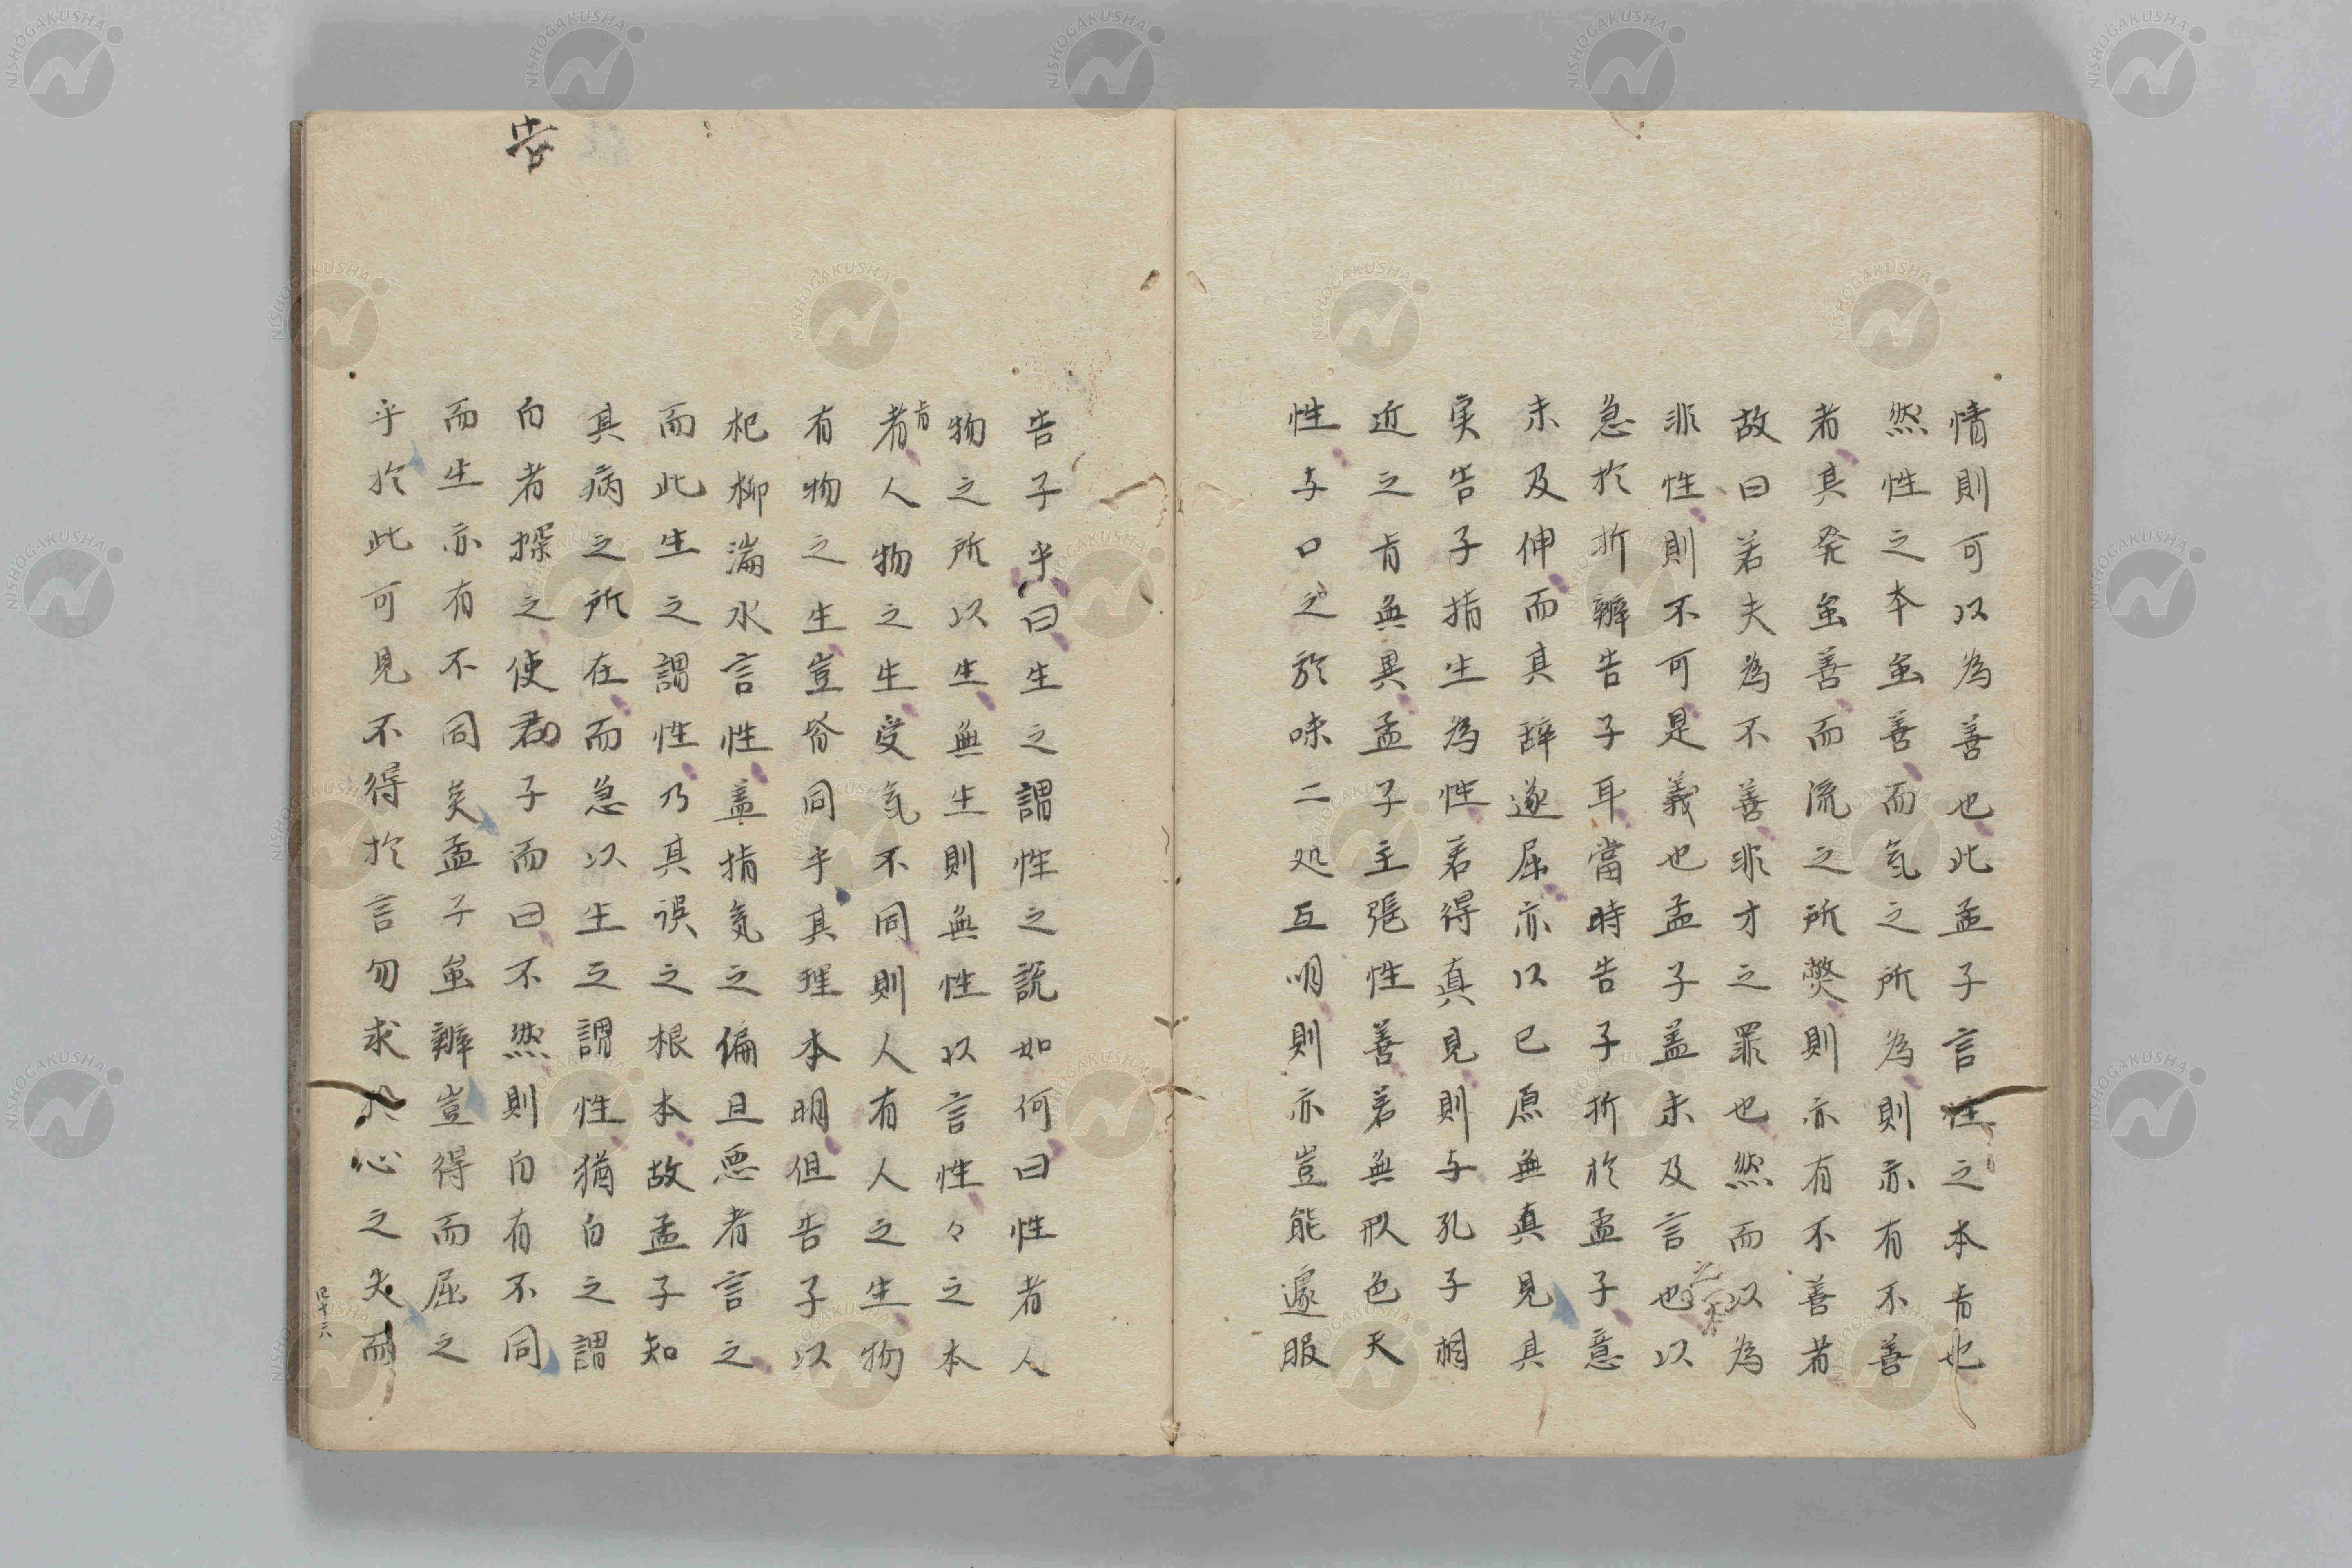 情則可以為善也此孟子言性之本旨也
然性之本虽善而気之所為則亦有不善
者其発虽善而流之所獘則亦有不善者
故曰若夫為不善非才之罪也然而以為
非性則不可是義也孟子盖未及言也以
急於折辨告子耳當時告子折於孟子意
未及伸而其辞遂屈亦以已原無真見其
実告子指生為性若得真見則与孔子相
近之旨無異孟子主張性善若無形色天
性与口之於味二処互明則亦豈能遽服
告子乎曰生之謂性之説如何曰性者人
物之所以生無生則無性以言性々之本
旨
者人物之生受気不同則人有人之生物
有物之生豈昝同乎其理本明但告子以
杞柳湍水言性盖指気之偏且悪者言之
而此生之謂性乃其誤之根本故孟子知
其病之所在而急以生之謂性猶白之謂
白者探之使君子而曰不然則白有不同
而生亦有不同矣孟子虽辨豈得而屈之
乎於此可見不得於言勿求於心之失而
NISHOGAKUSHA